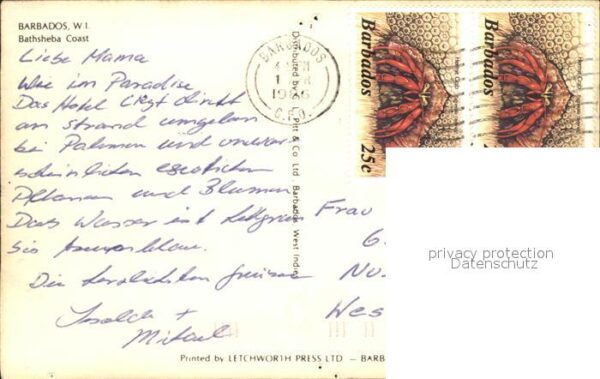 BARBADOS, W I.
Bathsheba Coast
Liebe Mama
Wie im Paradise
Das Hotel liegt direkt
am strand umgeben
bei Palmen und unwar-
scheinlichen exotischen
Pflanzen und Blumen
Das Wasser ist hellgrün
bis
Die herzlichsten Grüsse
+
Distributed by C. L. Pitt & Co. Ltd. Barbados West Indies
BARBADOS
1986
G.P.O.
Barbados
25c
Barbados
Frau
6
Wes
privacy protection
Datenschutz
Printed by LETCHWORTH PRESS LTD – BARB